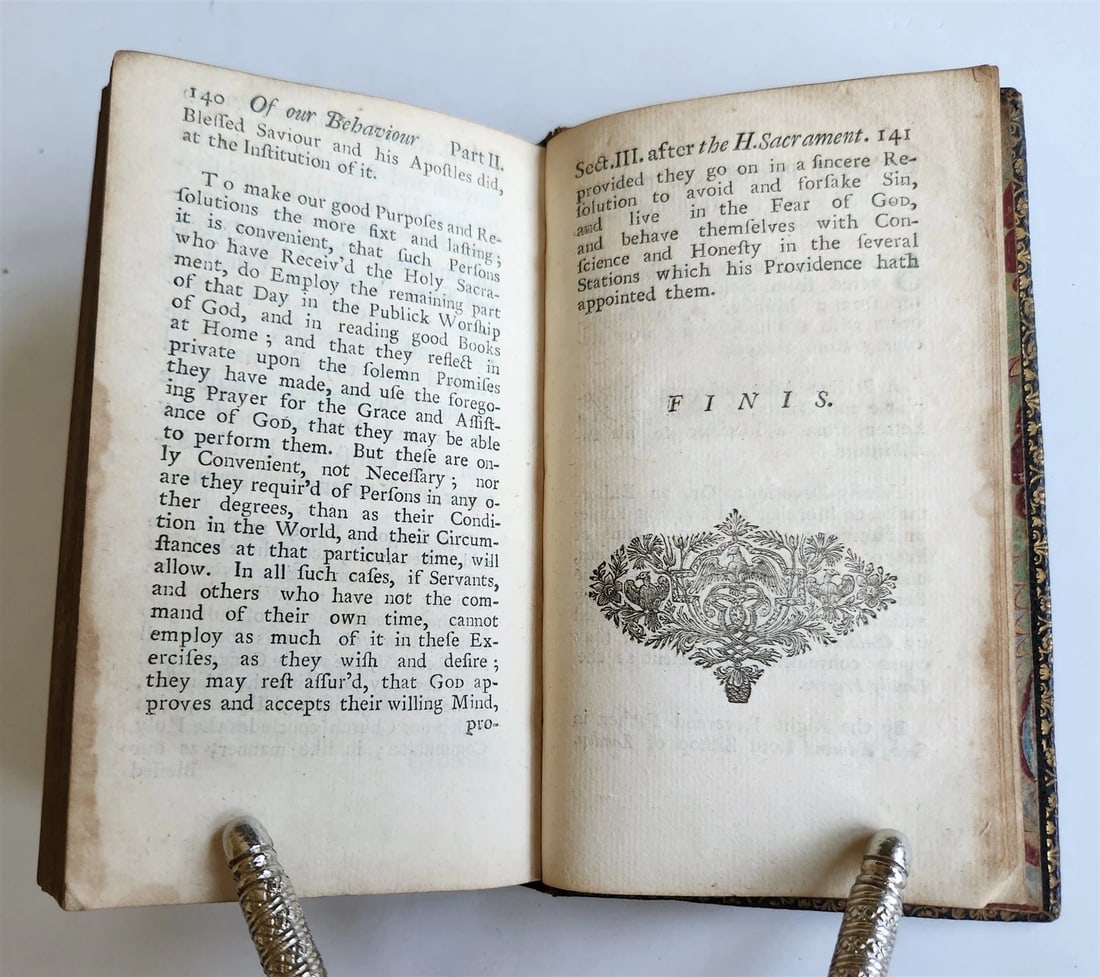 140 Of our Behaviour Part II.
Bleſſed Saviour and his Apoſtles did,
at the Inſtitution of it.
To make our good Purpoſes and Re-
ſolutions the more fixt and laſting;
it is convenient, that ſuch Perſons
who have Receiv'd the Holy Sacra-
ment, do Employ the remaining part
of that Day in the Publick Worſhip
of God, and in reading good Books
at Home; and that they reflect in
private upon the ſolemn Promiſes
they have made, and uſe the forego-
ing Prayer for the Grace and Aſſiſt-
ance of GOD, that they may be able
to perform them. But theſe are on-
ly Convenient, not Neceſſary; nor
are they requir'd of Perſons in any o-
ther degrees, than as their Condi-
tion in the World, and their Circum-
ſtances at that particular time, will
allow. In all ſuch caſes, if Servants,
and others who have not the com-
mand of their own time, cannot
employ as much of it in theſe Ex-
erciſes, as they wiſh and deſire;
they may reſt aſſur'd, that GOD ap-
proves and accepts their willing Mind,
pro-
Sect. III. after the H. Sacrament. 141
provided they go on in a ſincere Re-
ſolution to avoid and forſake Sin,
and live in the Fear of GOD,
and behave themſelves with Con-
ſcience and Honeſty in the ſeveral
Stations which his Providence hath
appointed them.
FINIS.